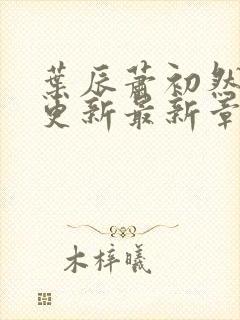 葉辰蕭初然
更新最新章
木梓曦